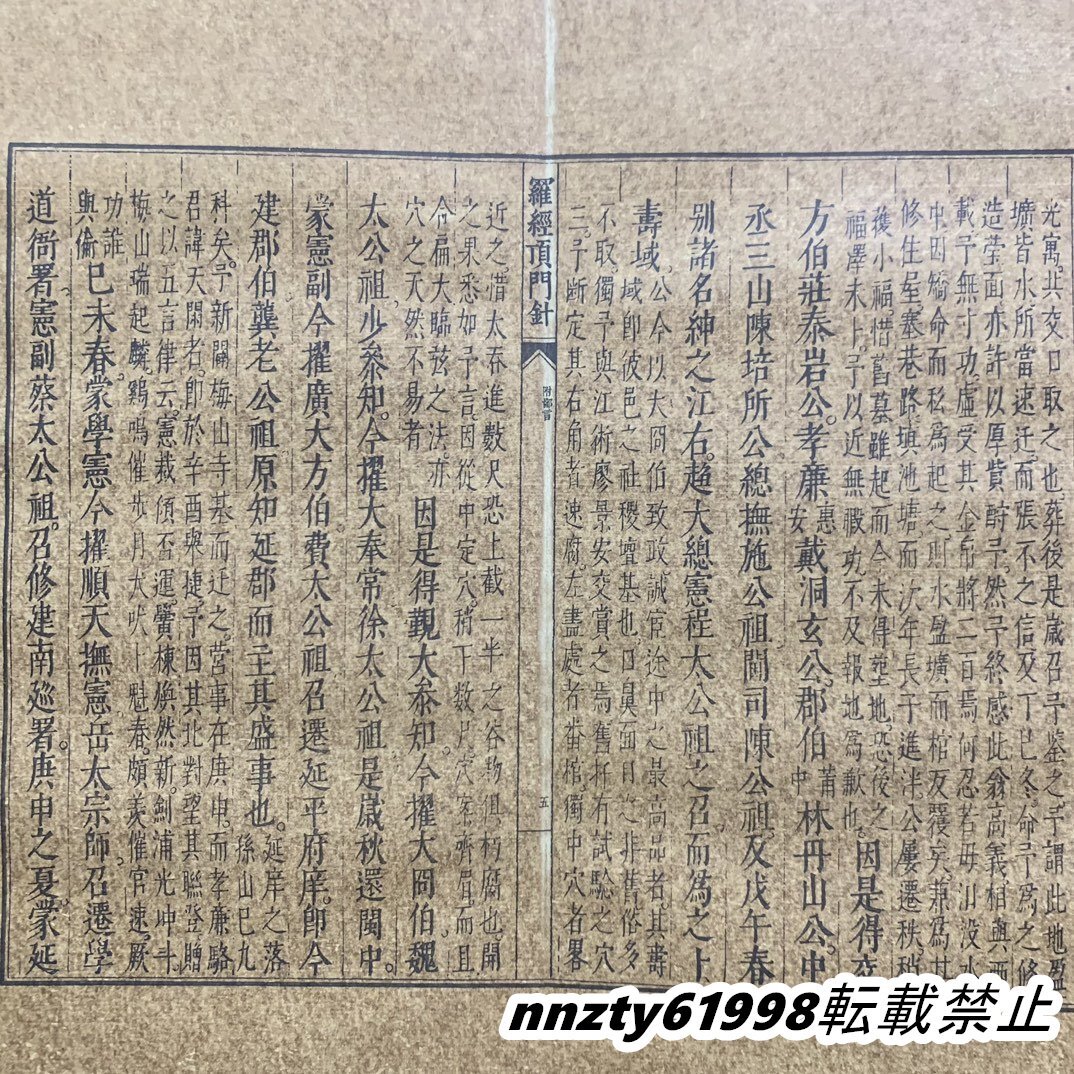 光寓其交口取之也葬後是歲召予鋻之予謂此地盈
壙皆水所當速迁而張不之信及丁巳冬命予為之修
造塋面亦許以厚貲酧予然予終感此翁高義相與西
載予無寸功虛受其金帛將二百焉何忍若毋山没水
中因矯命而私為起之則水盈壙而棺反覆矣兼為其
修生屋塞巷路填池塘而次年長子進泮公屢遷秩稍
獲小福惜舊墓雖起而今未得塟地恐後之
福澤未上予以近無職功不及報地為歉也因是得交
方伯莊泰岩公孝廉惠安戴洞玄公郡伯莆中林丹山公中
丞三山陳培所公總撫施公祖閫司陳公祖及戊午春
别諸名紳之江右趙大總憲桎太公祖之召而為之上
壽域公今以大冏伯致政誠宦途中之最高品者其壽
域即彼邑之社稷壇基也口臭面目之非舊俗多
不取獨予與江術廖景安交賞之焉舊扦有試驗之穴
三予斷定其右角者速腐左盡處者番棺獨中穴者畧
羅經頂門針
附鄙言
五
近之惜太吞進數尺恐上截一半之谷物俱朽腐也開
之果悉如予言因從中定穴稍下数尺穴穿齊眉而且
合扁大臨弦之法亦
穴之天然不易者因是得覲大叅知今擢大冏伯魏
太公祖少叅知今擢大奉常徐太公祖是歲秋還閩中
蒙憲副今擢廣大方伯費太公祖召遷延平府庠即今
建郡伯龔老公祖原知延郡而主其盛事也延庠之落孫山巳九
科矣予新闢梅山寺基而迁之营事在庚申而孝廉駱
君諱天閑者即於辛酉與捷予因其北對望其聯登贈
之以五言律云憲栽傾否運黌棟煥然新劍浦光冲斗
梅山瑞起麟鷄鳴催步月犬吠卜魁春頗羨催官速厥
功誰與倫巳未春蒙學憲今擢順天撫憲岳太宗師召遷學
道衙署憲副蔡太公祖召修建南廵署庚申之夏蒙延
nnzty61998転載禁止